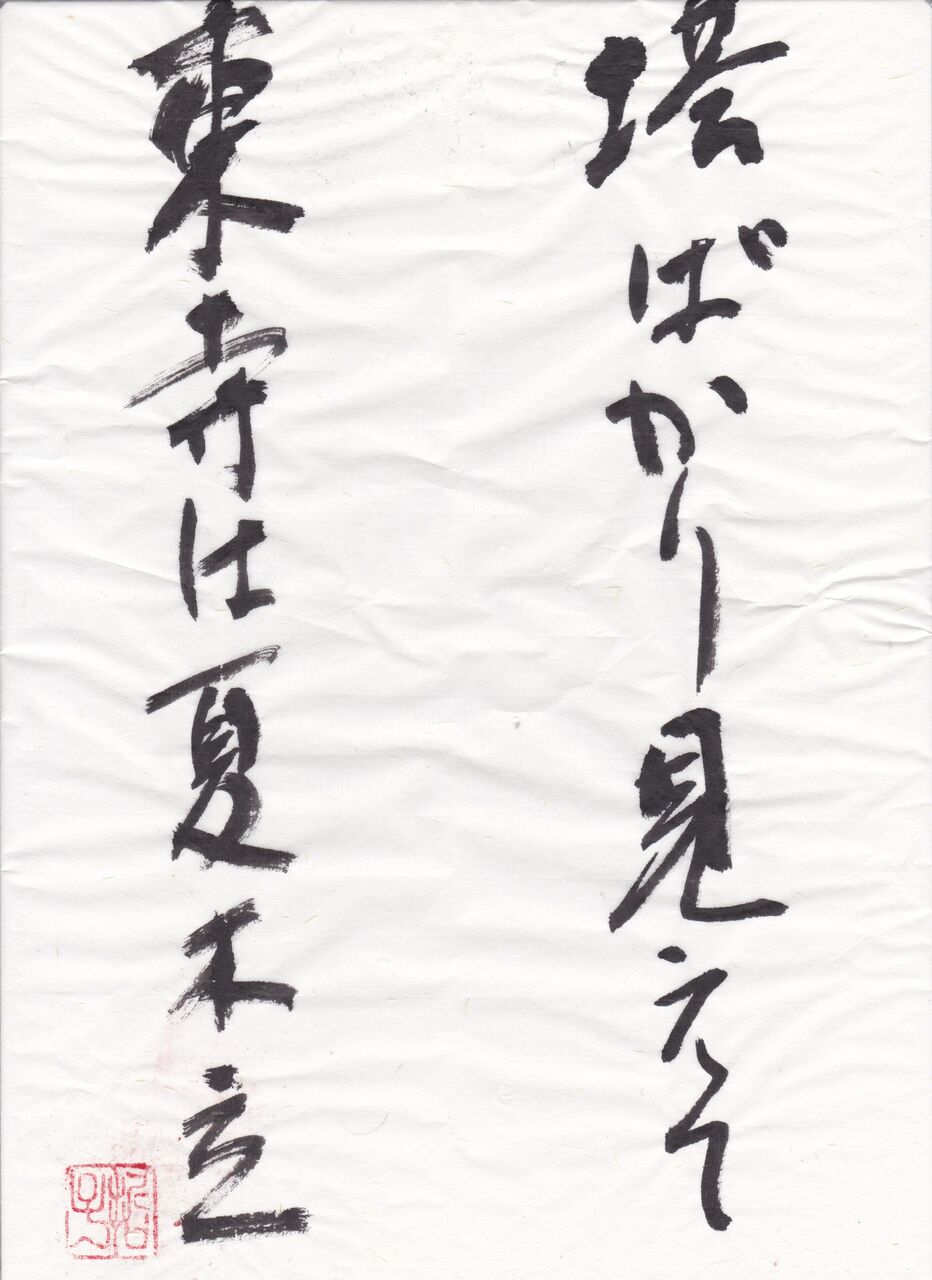 塔ばかり見えて
東寺は夏木立